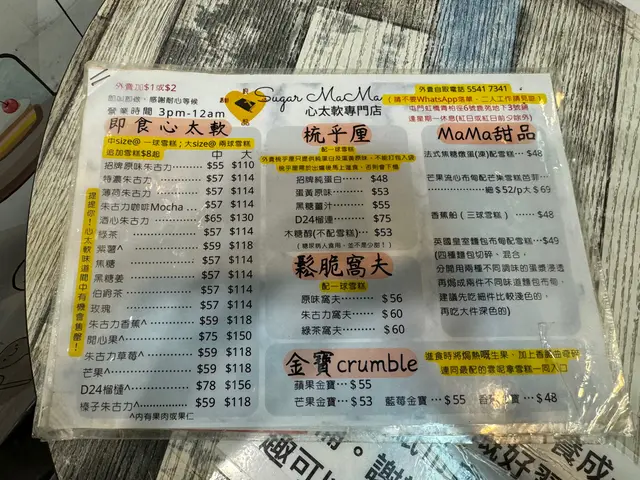 外賣加$1或$2
即叫即做，感謝耐心等候
營業時間 3pm-12am
Sugar MaMa
心太軟專門店
外賣自取電話 5541 7341
(請不要WhatsApp落單，二人工作請見諒)
屯門虹橋青柏徑6號食苑地下3號舖
逢星期一休息(紅日或紅日前夕除外)
即食心太軟
中size@ 一球雪糕；大size@ 兩球雪糕
追加雪糕$8起
中 大
招牌原味朱古力 $55 $110
特濃朱古力 $57 $114
薄荷朱古力 $57 $114
朱古力咖啡Mocha ... $57 $114
酒心朱古力 $65 $130
綠茶 $57 $114
紫薯^ $59 $118
焦糖 $57 $114
黑糖薑 $57 $114
伯爵茶 $57 $114
玫瑰 $57 $114
朱古力香蕉^ $59 $118
開心果^ $75 $150
朱古力草莓^ $59 $118
芒果^ $59 $118
D24榴槤^ $78 $156
榛子朱古力^ $59 $118
^內有果肉或果仁
提提你！心太軟味道間中有機會售罄！
梳乎厘
配一球雪糕
外賣梳乎厘只提供純蛋白及蛋黃原味，不能打包入袋
梳乎厘需於出爐後馬上進食，否則會下榻
招牌純蛋白 $48
蛋黃原味 $53
黑糖薑汁 $55
D24榴槤 $75
木糖醇(不配雪糕) $53
(糖尿病人食用，並不是少甜！)
鬆脆窩夫
配一球雪糕
原味窩夫 $56
朱古力窩夫 $60
綠茶窩夫 $60
MaMa甜品
法式焦糖燉蛋(凍)配雪糕 $48
芒果流心布甸配芒果雪糕芭菲...
細$52/p大$69
香蕉船 (三球雪糕) $48
英國皇室麵包布甸配雪糕 $49
(四種麵包切碎，混合，
分開用兩種不同調味的蛋漿浸透
再焗成兩件不同味道麵包布甸，
建議先吃細件比較淺色的，
再吃大件深色的)
金寶crumble
蘋果金寶 $55
芒果金寶 $53 藍莓金寶 $55 $48